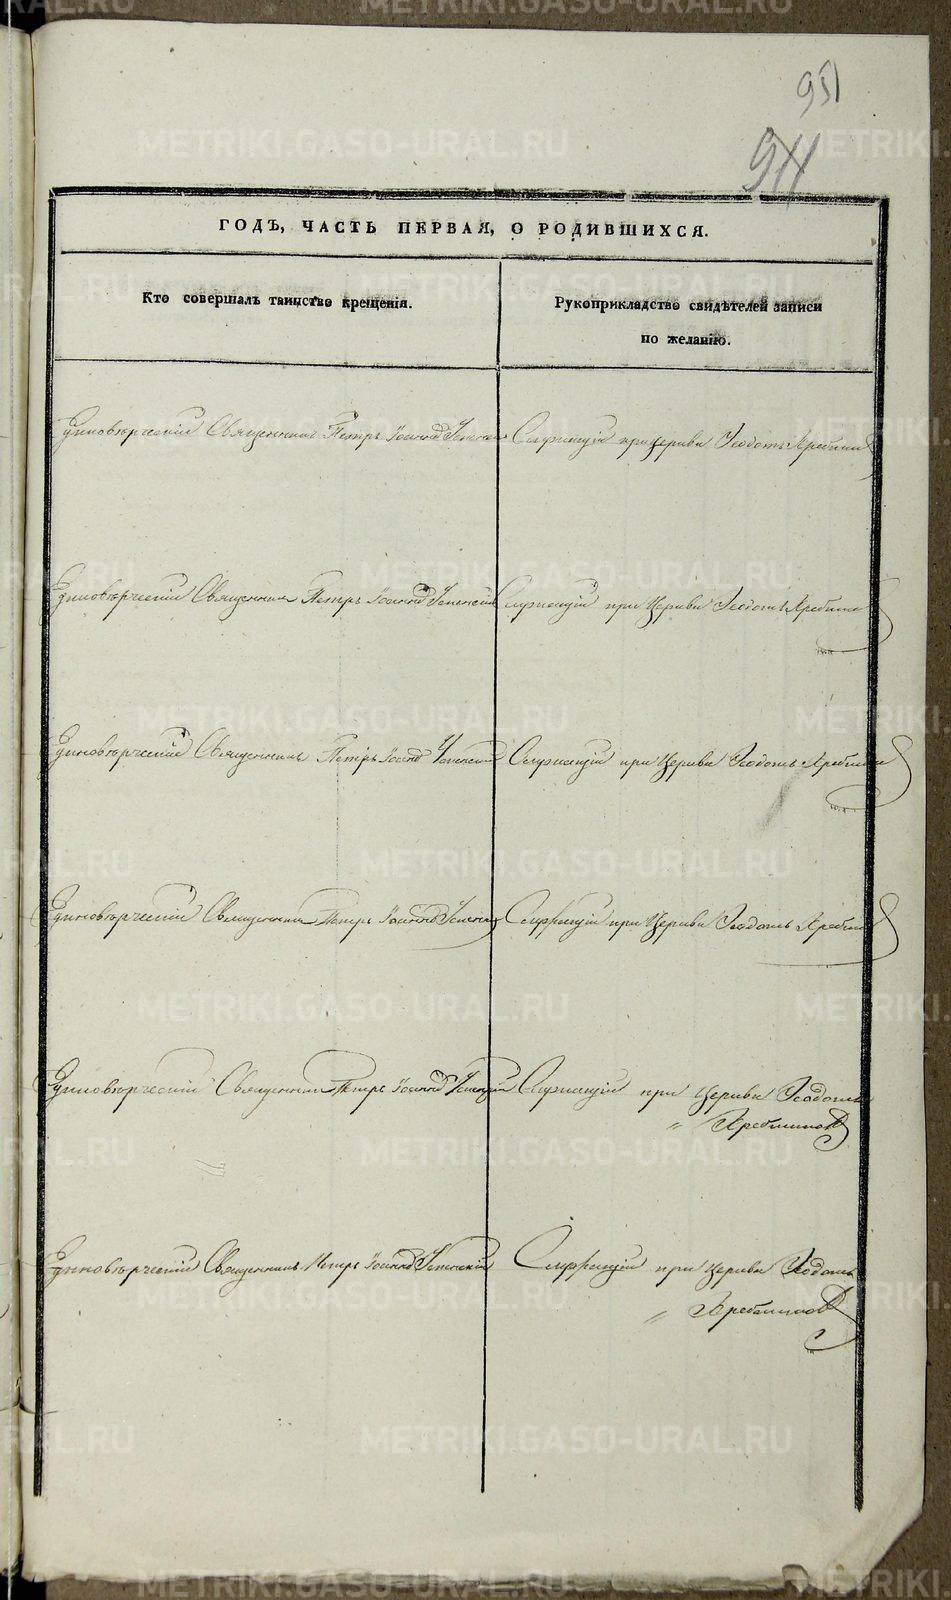 951
911
ГОДЪ, ЧАСТЬ ПЕРВАЯ, О РОДИВШИХСЯ.
Кто совершалъ таинство крещенія.
Рукоприкладство свидѣтелей записи
по желанію.
Единовѣрческій Священникъ Петръ Іоанновъ Успенскій
Служащій при церкви Ѳеодотъ
Единовѣрческій Священникъ Петръ Іоанновъ Успенскій
Служащій при Церкви Ѳеодотъ
Единовѣрческій Священникъ Петръ Іоаннов Успенскій
Служащій при Церкви Ѳеодотъ
Единовѣрческій Священникъ Петръ Іоанновъ Успенскій
Служащій при Церкви Ѳеодотъ
Единовѣрческій Священникъ Петръ Іоанновъ Успенскій
Служащій при Церкви Ѳеодотъ
Единовѣрческій Священникъ Петръ Іоанновъ Успенскій
Служащій при Церкви Ѳеодотъ
METRIKI.GASO-URAL.RU